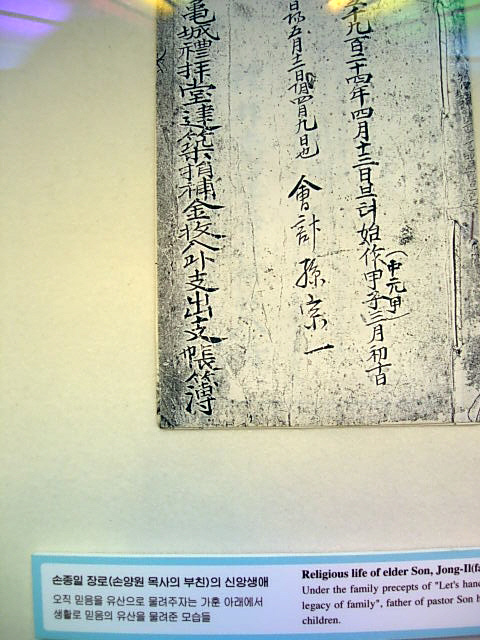 千九百二十四年四月十三日브터始作甲子三月初十日
(中元甲)
五月十二日 四月九日也
會計 孫宗一
龜城禮拜堂建築捐補金收入外支出支帳簿
손종일 장로(손양원 목사의 부친)의 신앙생애
오직 믿음을 유산으로 물려주자는 가훈 아래에서
생활로 믿음의 유산을 물려준 모습들
Religious life of elder Son, Jong-Il(fa
Under the family precepts of "Let's hand
legacy of family", father of pastor Son h
children.